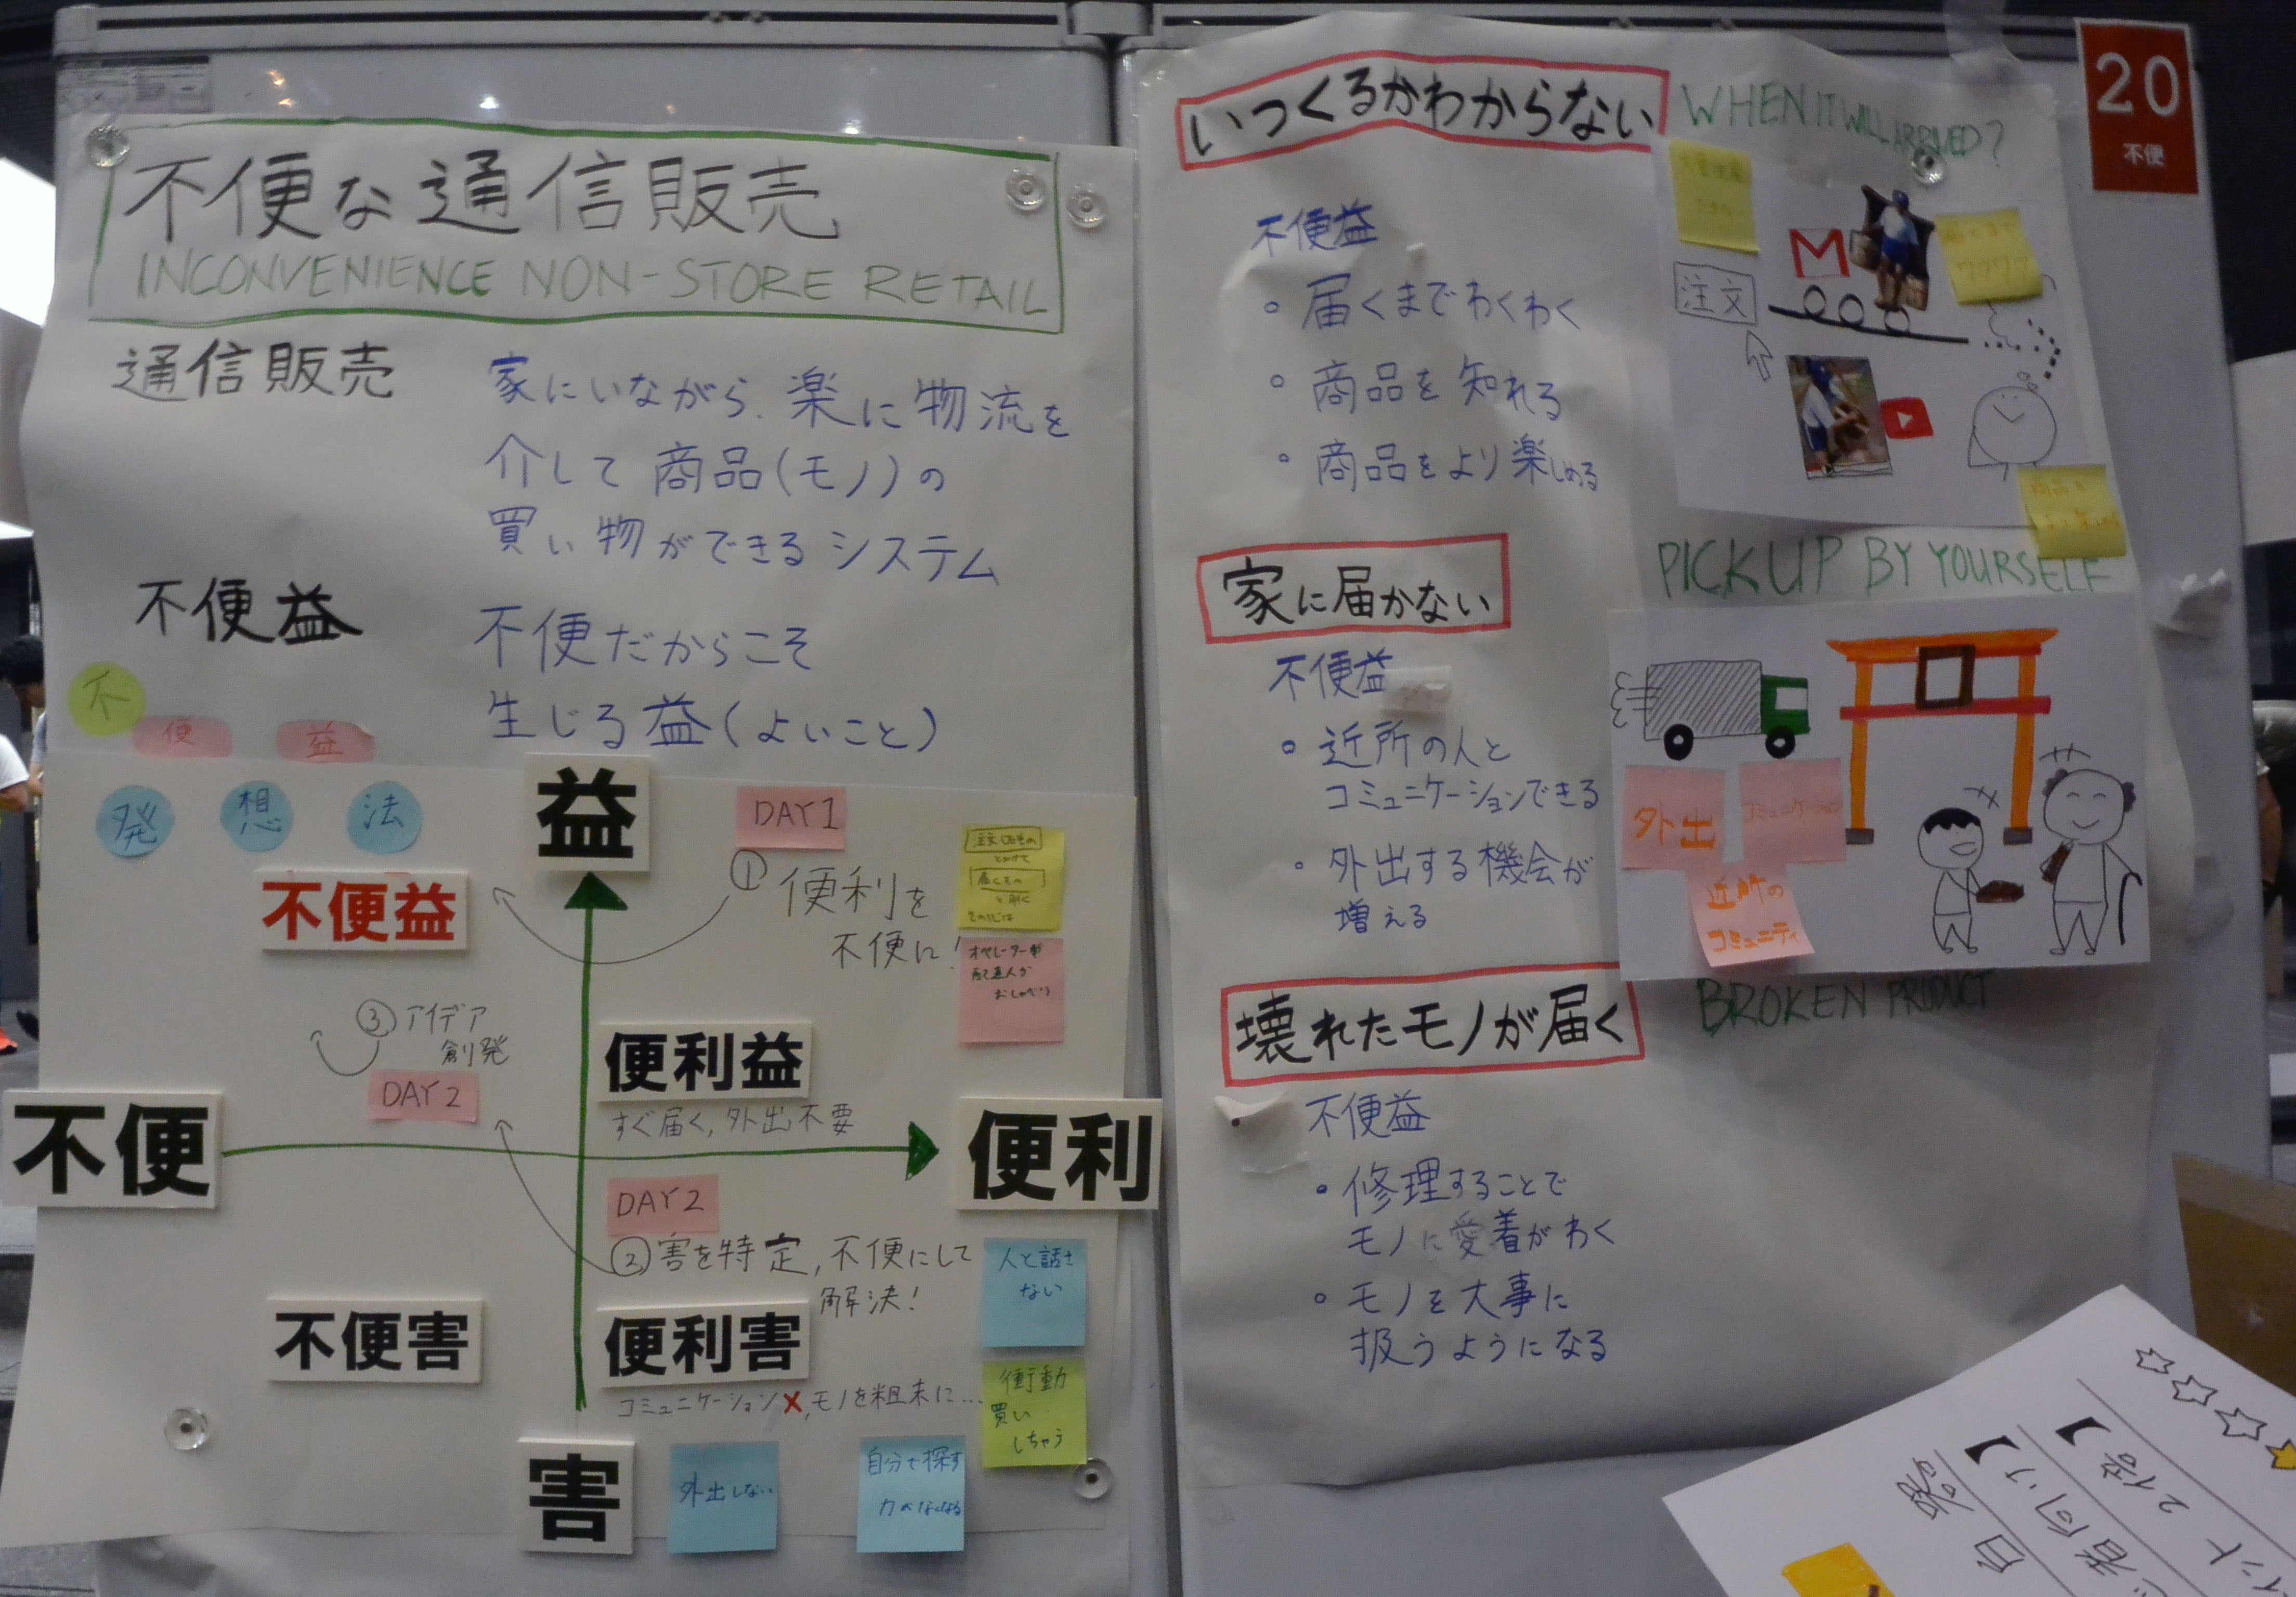 不便な通信販売
INCONVENIENCE NON-STORE RETAIL
通信販売
家にいながら、楽に物流を
介して商品(モノ)の
買い物ができるシステム
不便益
不便だからこそ
生じる益(よいこと)
不
便
益
発
想
法
益
DAY1
①便利を
不便に!
注文
届く
オペレーターや
配達人が
おしゃべり
不便益
③アイデア
創発
DAY2
便利益
すぐ届く,外出不要
不便
便利
DAY2
②害を特定,不便にして
解決!
人と話さ
ない
不便害
便利害
コミュニケーション×,モノを粗末に…
衝動
買い
しちゃう
害
外出しない
自分で探す
力がなくなる
いつくるかわからない
WHEN IT WILL ARRIVED?
20
不便
不便益
・届くまでわくわく
・商品を知れる
・商品をより楽しめる
注文
M
ワクワク
家に届かない
PICK UP BY YOURSELF
不便益
・近所の人と
コミュニケーションできる
・外出する機会が
増える
外出
コミュニケーション
近所の
コミュニティ
壊れたモノが届く
BROKEN PRODUCT
不便益
・修理することで
モノに愛着がわく
・モノを大事に
扱うようになる
者向け】
2倍】